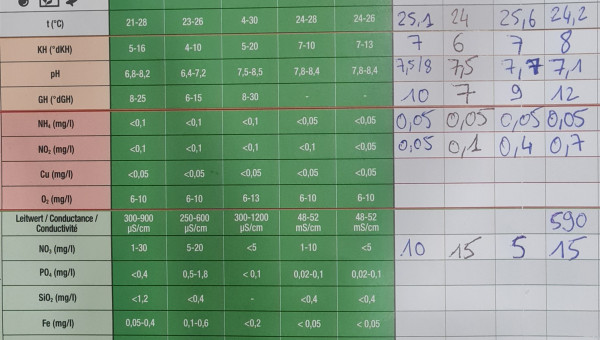 t (°C) 21-28 23-26 4-30 24-28 24-26 25,1 24 25,6 24,2
KH (°dKH) 5-16 4-10 5-20 7-10 7-13 7 6 7 8
pH 6,8-8,2 6,4-7,2 7,5-8,5 7,8-8,4 7,8-8,4 7,5/8 7,5 7,7 7,1
GH (°dGH) 8-25 6-15 8-30 - - 10 7 9 12
NH₄ (mg/l) <0,1 <0,1 <0,1 <0,05 <0,05 0,05 0,05 0,05 0,05
NO₂ (mg/l) <0,1 <0,1 <0,1 <0,05 <0,05 0,05 0,1 0,4 0,7
Cu (mg/l) <0,05 <0,05 <0,05 <0,05 <0,05
O₂ (mg/l) 6-10 6-10 6-13 6-10 6-10
Leitwert / Conductance / 300-900 250-600 300-1200 48-52 48-52 590
Conductivité µS/cm µS/cm µS/cm mS/cm mS/cm
NO₃ (mg/l) 1-30 5-20 <5 1-10 <5 10 15 5 15
PO₄ (mg/l) <0,4 0,5-1,8 < 0,1 0,02-0,1 0,02-0,1
SiO₂ (mg/l) <1,2 <0,4 - <0,4 <0,4
Fe (mg/l) 0,05-0,4 0,1-0,6 <0,2 < 0,05 < 0,05